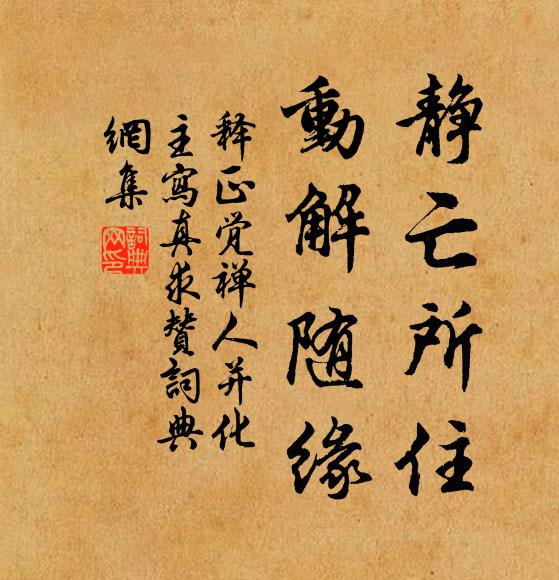 静亡所住
動解随缘
释正觉禅人并化
主寫真求賛詞典
網集
詞典網印